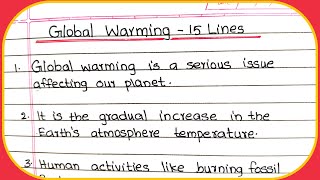 Global Warming - 15 Lines
1. Global warming is a serious issue
affecting our planet.
2. It is the gradual increase in the
Earth's atmosphere temperature.
3. Human activities like burning fossil